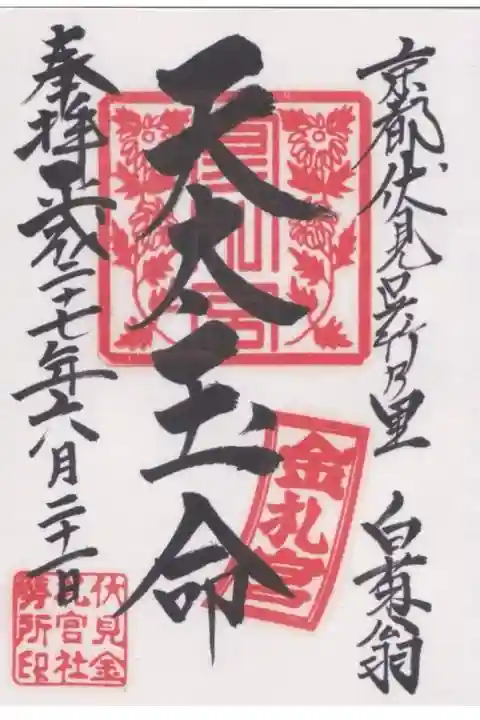 京都伏見呉竹乃里 白菊翁
天太玉命
奉拝 平成二十七年六月二十一日
金札宮
伏見金
札宮社
務所印